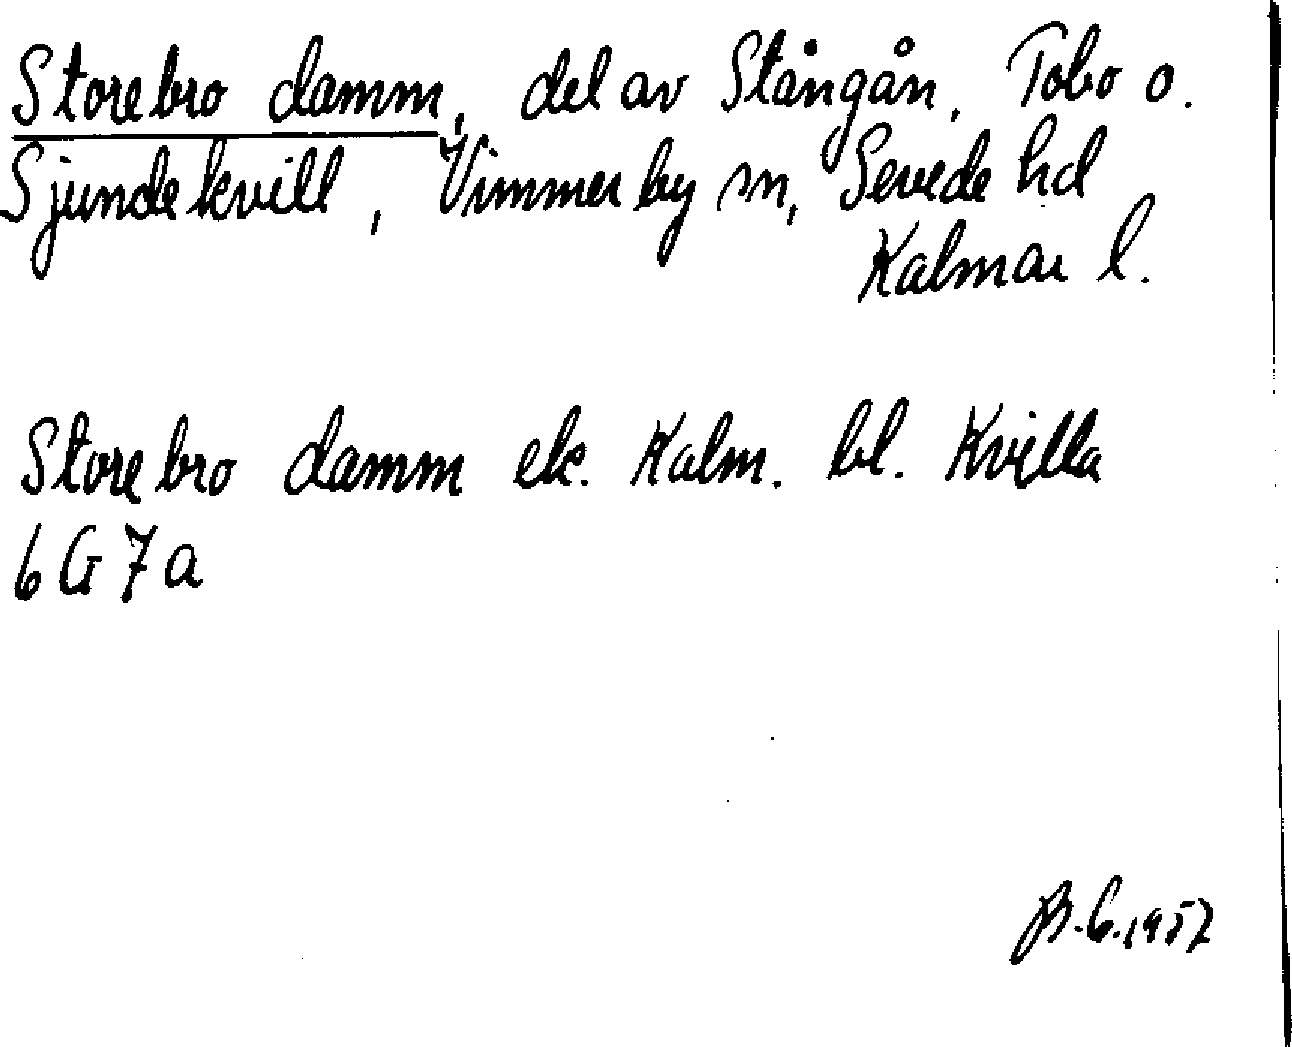 Storebro damm, del av Stångån, Tobo o.
Sjundekvill, Vimmerby sn, Sevede hd
Kalmar l.
Storebro damm ek. Kalm. bl. Kvilla
6 G 7 a
B.G. 1957